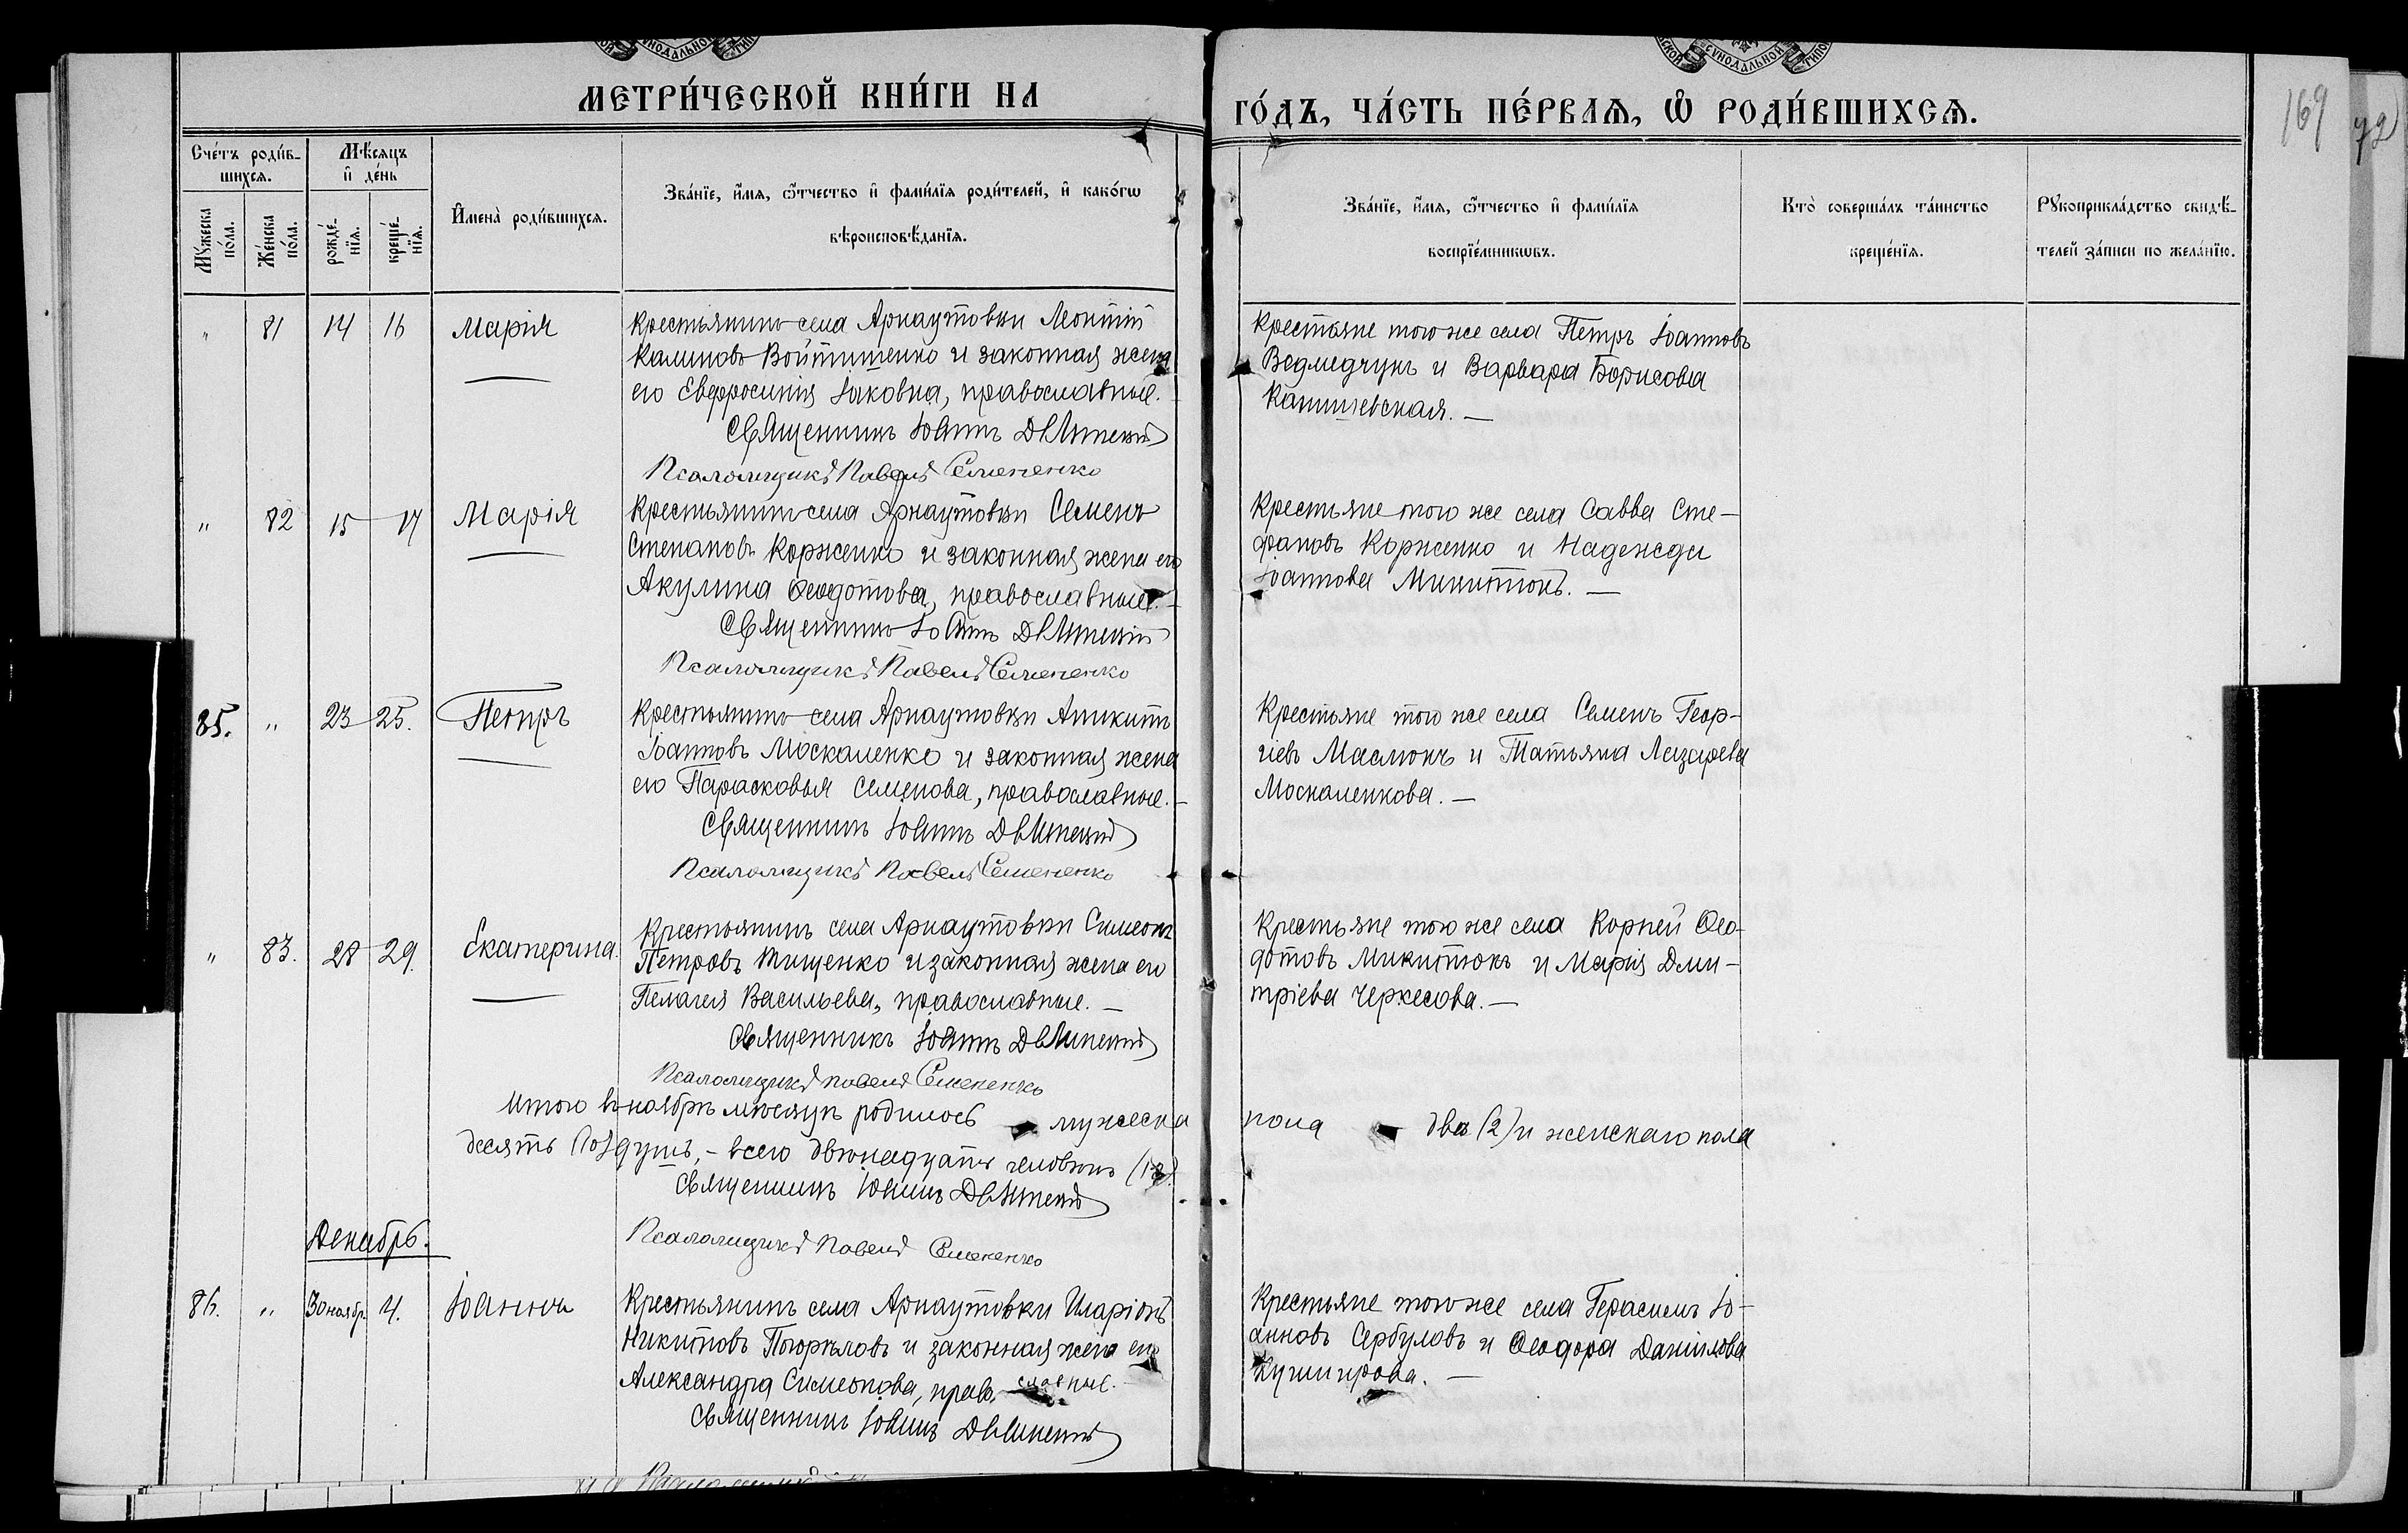 МЕТРИ́ЧЕСКОЙ КНИ́ГИ НА
ГО́ДЪ, ЧА́СТЬ ПЕ́РВАѦ, Ѡ҆ РОДИ́ВШИХСѦ.
169
Сче́тъ роди́в-
шихсѧ.
Мѣ́сѧцъ
и҆ де́нь
Му́жеска
по́ла.
Же́нска
по́ла.
рожде́-
нїѧ.
креще́-
нїѧ.
И҆мена̀ роди́вшихсѧ.
Зва́нїе, и҆́мѧ, ѻ҆́тчество и҆ фами́лїѧ роди́телей, и҆ како́гѡ
вѣроисповѣ́данїѧ.
Зва́нїе, и҆́мѧ, ѻ҆́тчество и҆ фами́лїѧ
воспрїе́мникѡвъ.
Кто̀ соверша́лъ та́инство
креще́нїѧ.
Рꙋкоприкла́дство свидѣ́-
телей за́писи по жела́нїю.
" 81 14 16 Марія
Крестьянинъ села Арнаутовки Леонтій
Калиновъ Войтишенко и законная жена
его Евфросинія Іаковна, православные.
Священникъ Іоаннъ
Псаломщикъ Павелъ Семененко
Крестьяне того же села Петръ Іоанновъ
Ведмедчукъ и Варвара Борисова
Канишевская. —
" 82 15 17 Марія
Крестьянинъ села Арнаутовки Семенъ
Степановъ Корженко и законная жена его
Акулина Ѳеодотова, православные. —
Священникъ Іоаннъ
Псаломщикъ Павелъ Семененко
Крестьяне того же села Савва Сте-
фановъ Корженко и Надежда
Іоаннова Микитюкъ. —
85. " 23 25. Петръ
Крестьянинъ села Арнаутовки Аникита
Іоанновъ Москаленко и законная жена
его Парасковья Семенова, православные. —
Священникъ Іоаннъ
Псаломщикъ Павелъ Семененко
Крестьяне того же села Семенъ Геор-
гіевъ Маслюкъ и Татьяна Лазарева
Москаленкова. —
" 83. 28 29. Екатерина.
Крестьянинъ села Арнаутовки Симеонъ
Петровъ Тищенко и законная жена его
Пелагея Васильева, православные. —
Священникъ Іоаннъ
Псаломщикъ Павелъ Семененко
Крестьяне того же села Корней Ѳео-
дотовъ Микитюкъ и Марія Дми-
тріева Черкесова. —
Итого въ ноябрѣ мѣсяцѣ родилось мужеска пола два (2) и женскаго пола
десять (10) душъ, — всего двѣнадцать человѣкъ (12).
Священникъ Іоаннъ
Псаломщикъ Павелъ Семененко
Декабрь.
86. " 30 ноябр. 4. Іоаннъ
Крестьянинъ села Арнаутовки Иларіонъ
Никитовъ и законная жена его
Александра Симеонова, православные. —
Священникъ Іоаннъ
Крестьяне того же села Герасимъ Іо-
анновъ Сербуловъ и Ѳеодора Данилова
Кушнирова. —